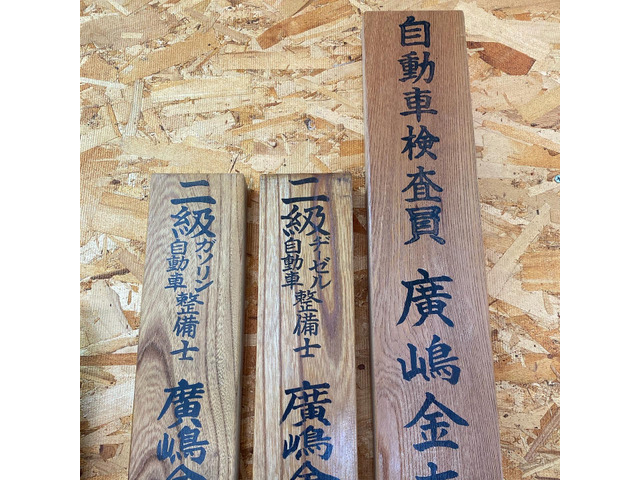 自動車検査員 廣嶋金
二級ヂーゼル自動車整備士 廣嶋金
二級ガソリン自動車整備士 廣嶋金